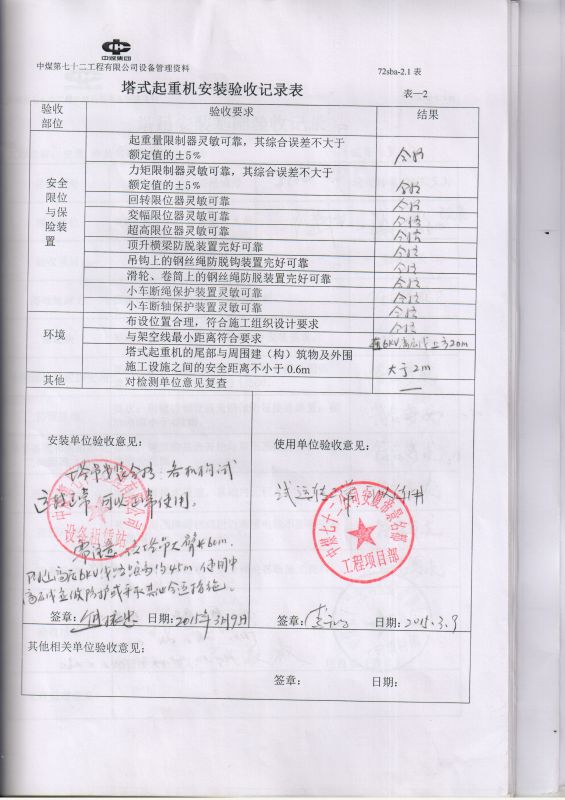 中煤集团
中煤第七十二工程有限公司设备管理资料
72sba-2.1 表
塔式起重机安装验收记录表
表—2
验收部位 验收要求 结果
安全限位与保险装置
起重量限制器灵敏可靠，其综合误差不大于
额定值的±5% 合格
力矩限制器灵敏可靠，其综合误差不大于
额定值的±5% 合格
回转限位器灵敏可靠 合格
变幅限位器灵敏可靠 合格
超高限位器灵敏可靠 合格
顶升横梁防脱装置完好可靠 合格
吊钩上的钢丝绳防脱钩装置完好可靠 合格
滑轮、卷筒上的钢丝绳防脱装置完好可靠 合格
小车断绳保护装置灵敏可靠 合格
小车断轴保护装置灵敏可靠 合格
环境
布设位置合理，符合施工组织设计要求 合格
与架空线最小距离符合要求 6KV高压
塔式起重机的尾部与周围建（构）筑物及外围
施工设施之间的安全距离不小于 0.6m 大于2m
其他 对检测单位意见复查 —
安装单位验收意见：
塔吊安装合格 各机构试
运转正常 可以正常使用。
设备租赁站
签章： 日期：2015年3月9日
使用单位验收意见：
试运转正常 可以使用
工程项目部
签章： 日期：2015.3.9
其他相关单位验收意见：
签章： 日期：